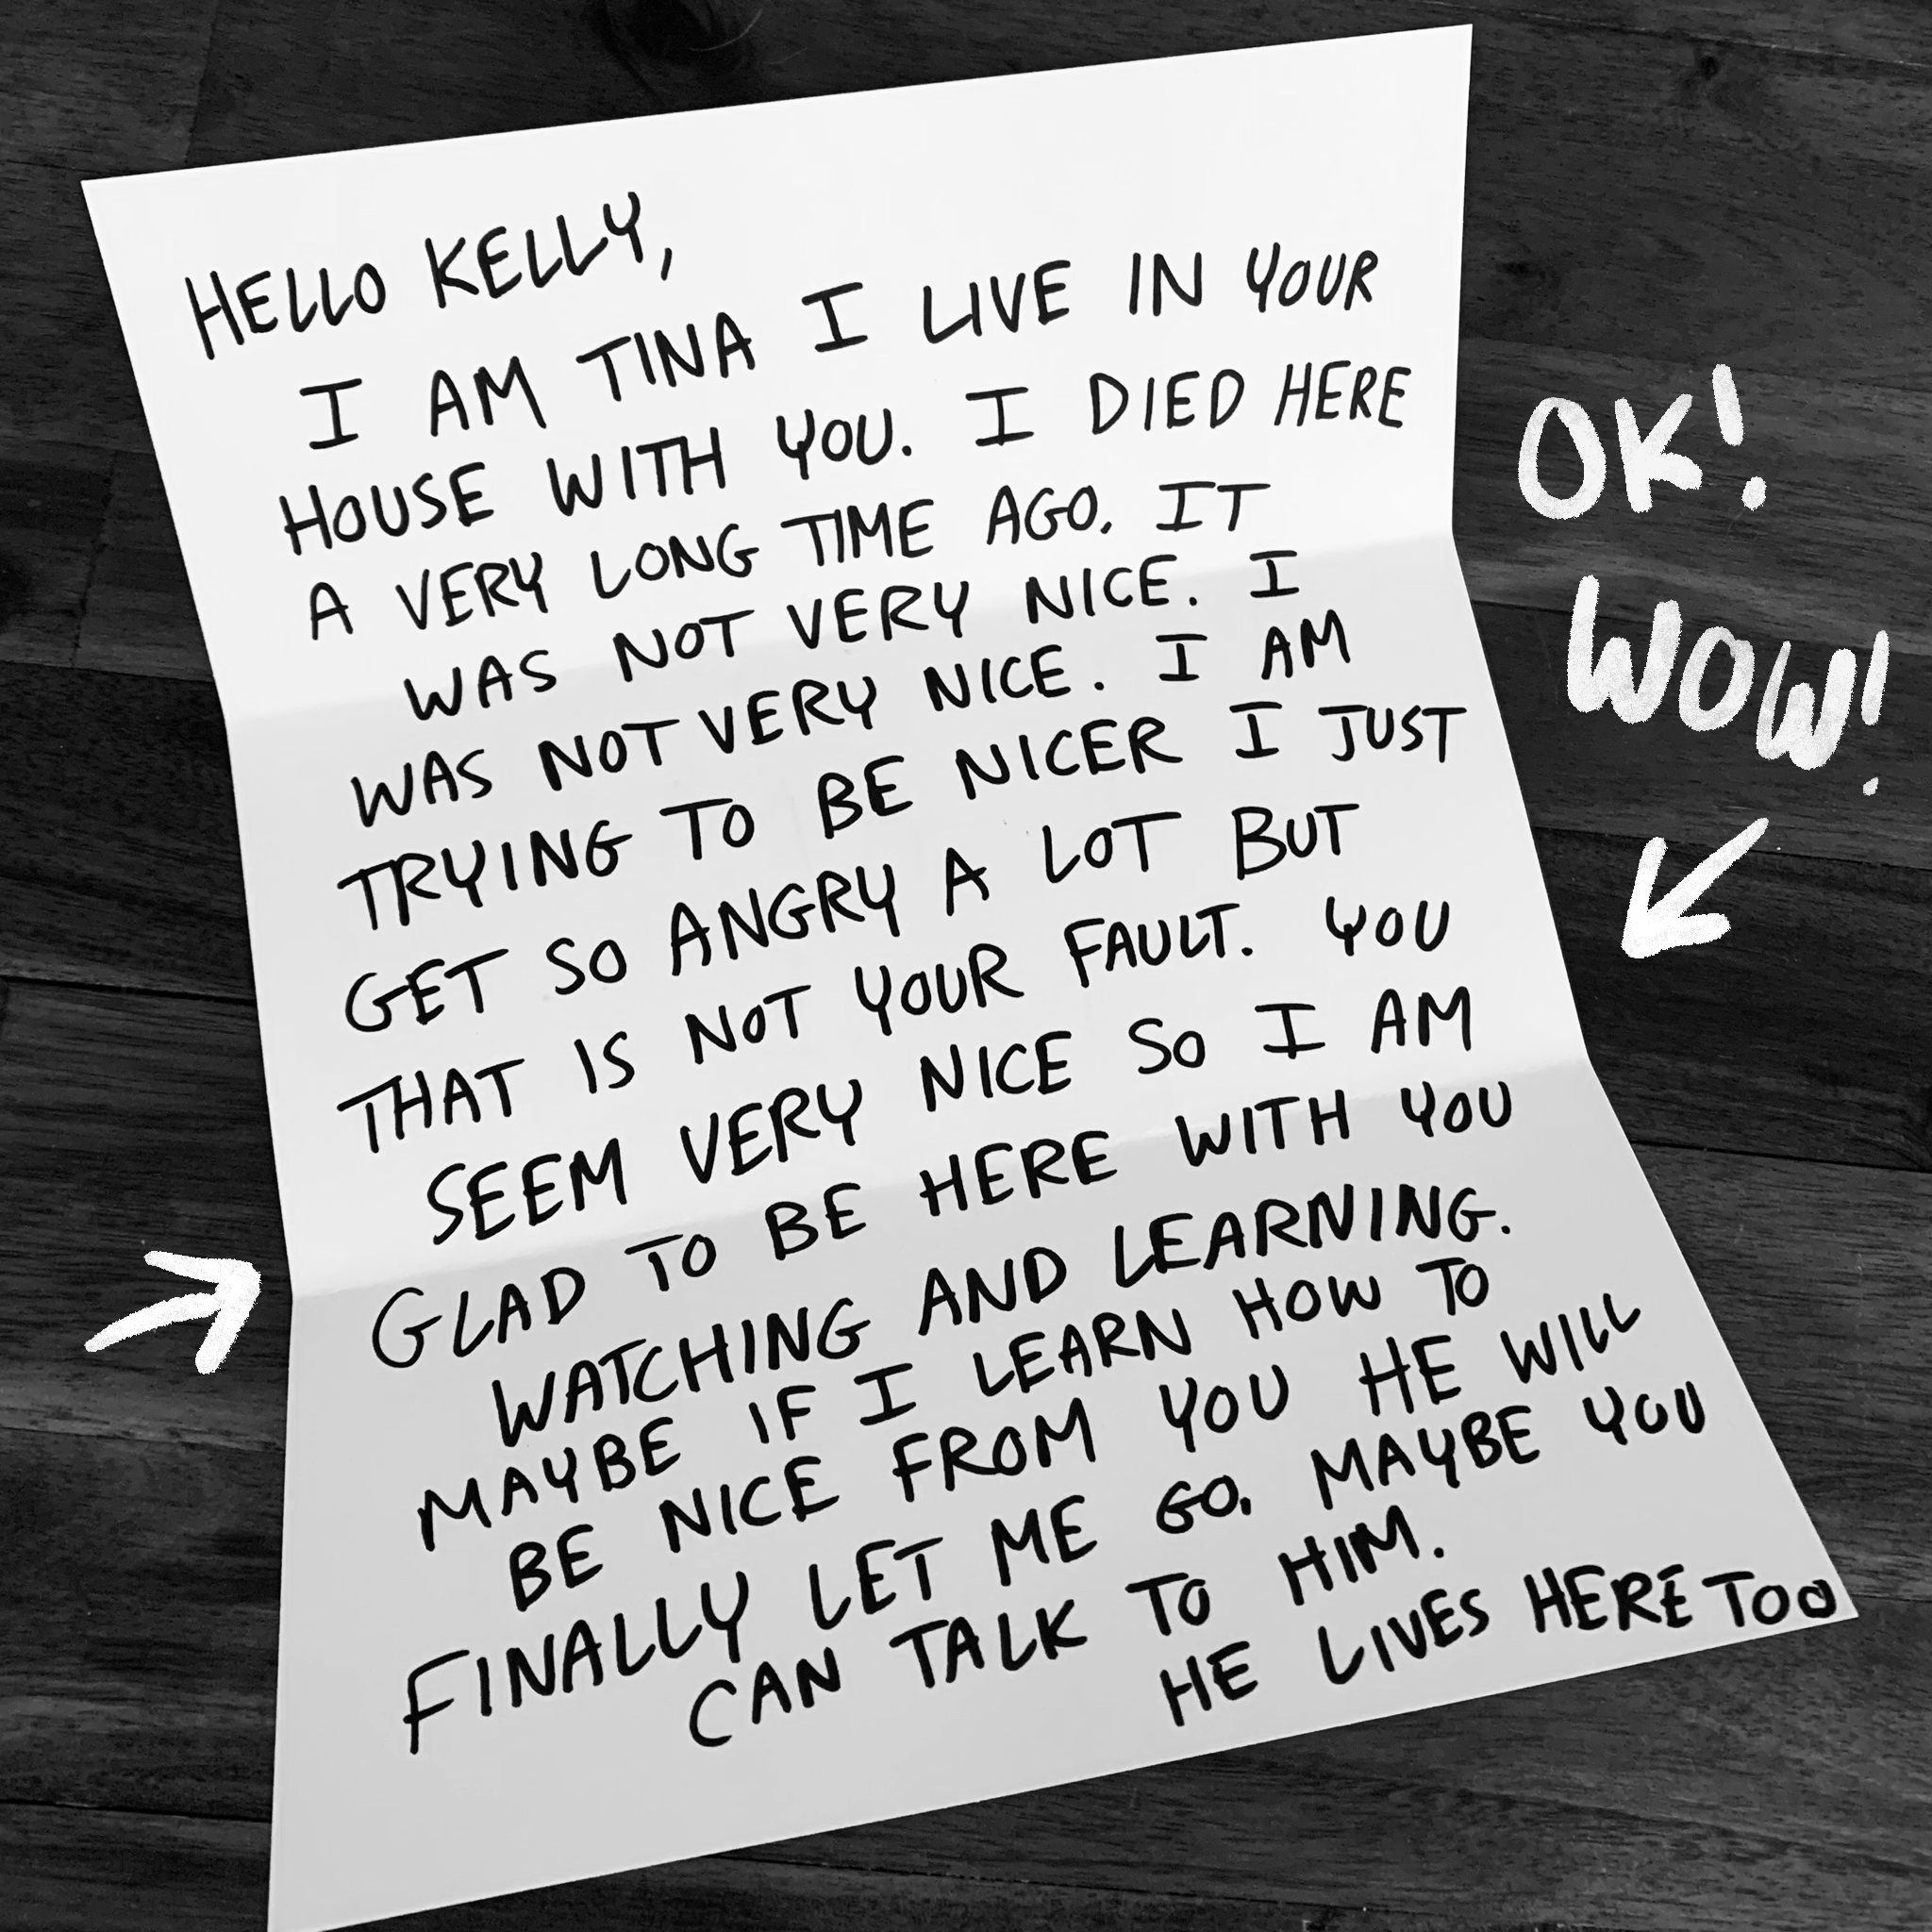 HELLO KELLY,
I AM TINA I LIVE IN YOUR
HOUSE WITH YOU. I DIED HERE
A VERY LONG TIME AGO. IT
WAS NOT VERY NICE. I
WAS NOT VERY NICE. I AM
TRYING TO BE NICER I JUST
GET SO ANGRY A LOT BUT
THAT IS NOT YOUR FAULT. YOU
SEEM VERY NICE SO I AM
GLAD TO BE HERE WITH YOU
WATCHING AND LEARNING.
MAYBE IF I LEARN HOW TO
BE NICE FROM YOU HE WILL
FINALLY LET ME GO. MAYBE YOU
CAN TALK TO HIM.
HE LIVES HERE TOO
OK!
WOW!